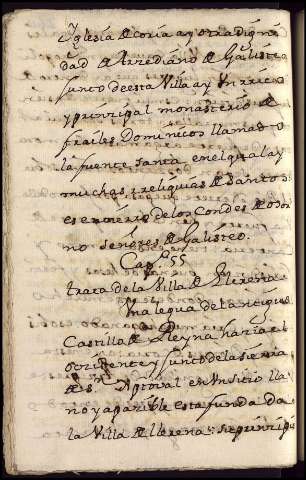 Yglesia de coria ay otra digni
dad de Arcediano de Galisteo
junto de esta Villa ay Un rrico
y prinzipal monasterio de
frailes Dominicos llamado
la fuente santa en el qual ay
muchas rreliquias de Santos
es entierro de los Condes de osor
no señores de Galisteo.
Capº 55
trata de la Villa de Llerena
Una legua del antiguo
Castillo de Reyna hazia el
ocçidente y junto de la sierra
de Sⁿ Xptoval en Un sitio lla
no y apazible esta funda da
la Villa de llerena: se prinzipi